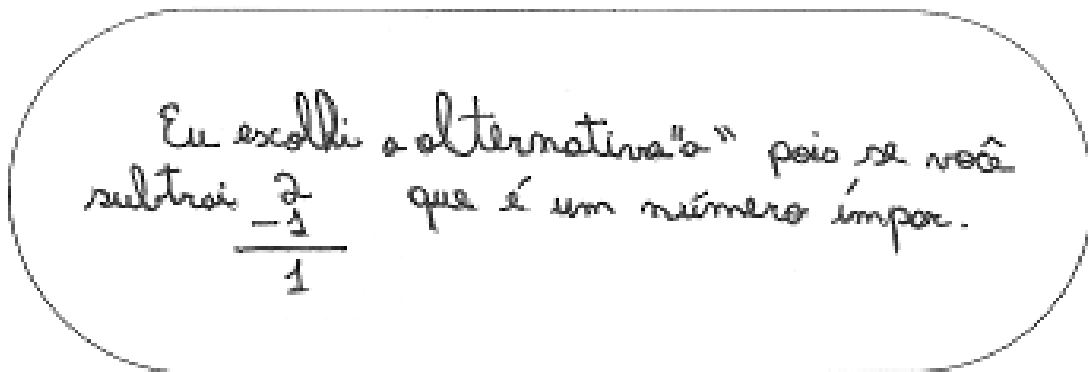 Eu escolhi a alternativa "a" pois se você
subtrai 2 que é um número ímpar.
-1
1